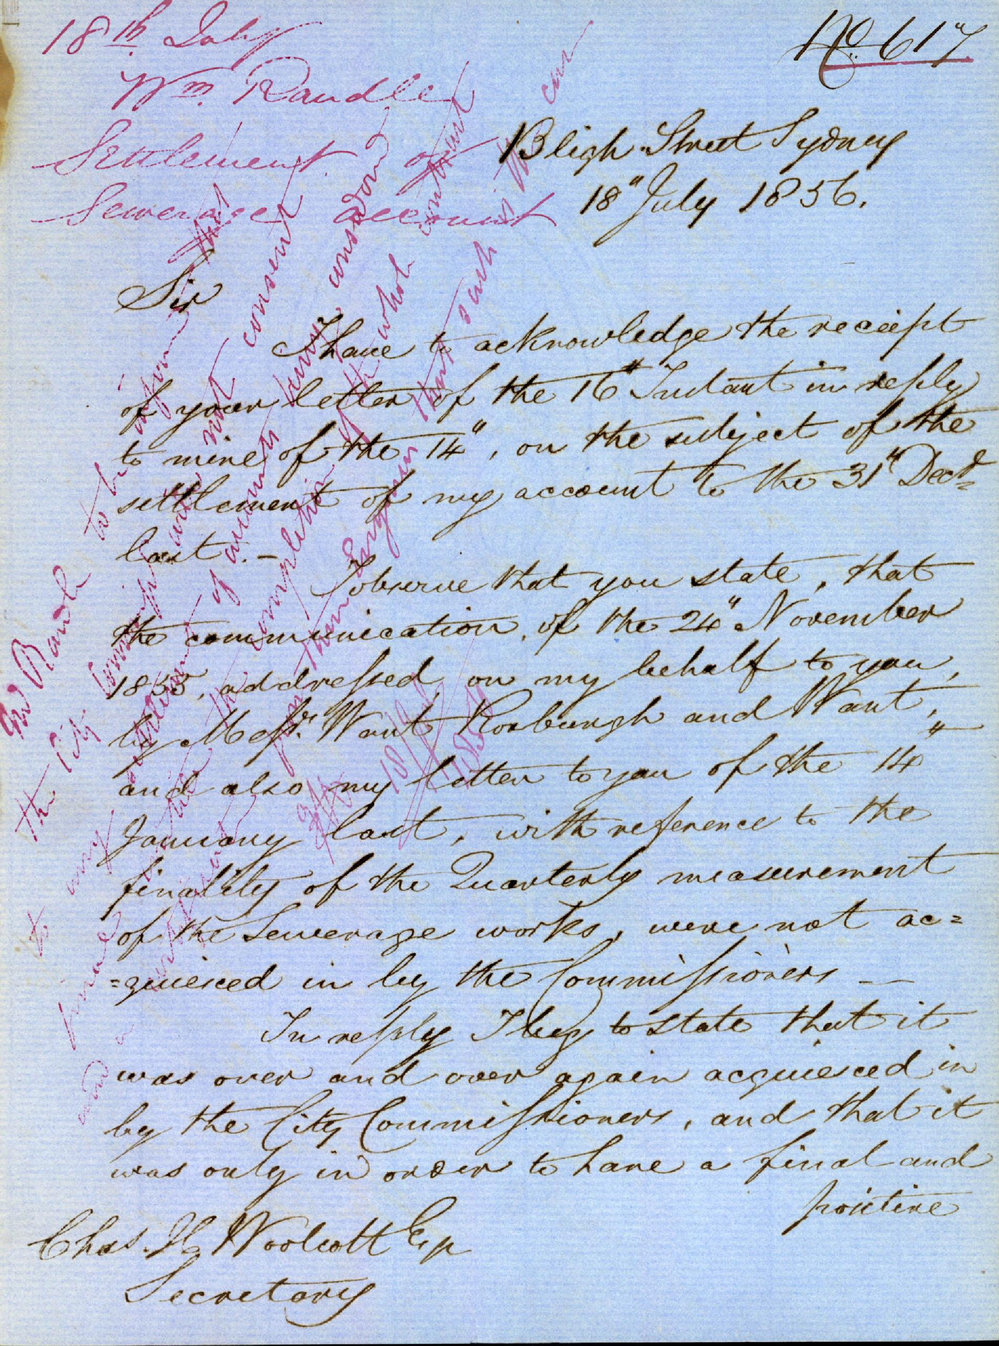 18th July
Wm. Randle
Settlement of
Sewerage account
No. 617
Bligh Street Sydney
18" July 1856.
Sir
I have to acknowledge the receipt
of your letter of the 16th Instant in reply
to mine of the 14", on the subject of the
settlement of my account to the 31st Decr.
last. –
I observe that you state, that
the communication, of the 24" November
1855, addressed on my behalf to you,
by Messrs. Want Roxburgh and Want,
and also my letter to you of the 14"
January last, with reference to the
finality of the Quarterly measurement
of the Sewerage works, were not ac=
=quiesced in by the Commissioners —
In reply I beg to state that it
was over and over again acquiesced in
by the City Commissioners, and that it
was only in order to have a final and
positive
Chas. H. Woolcott Esqr
Secretary
Mr Randle to be inform that
the City Commissr will not consent
to any settlement of accounts being considered
final till the completion of the whole contract
and a further Engineer that such is the case
18/7/
1856